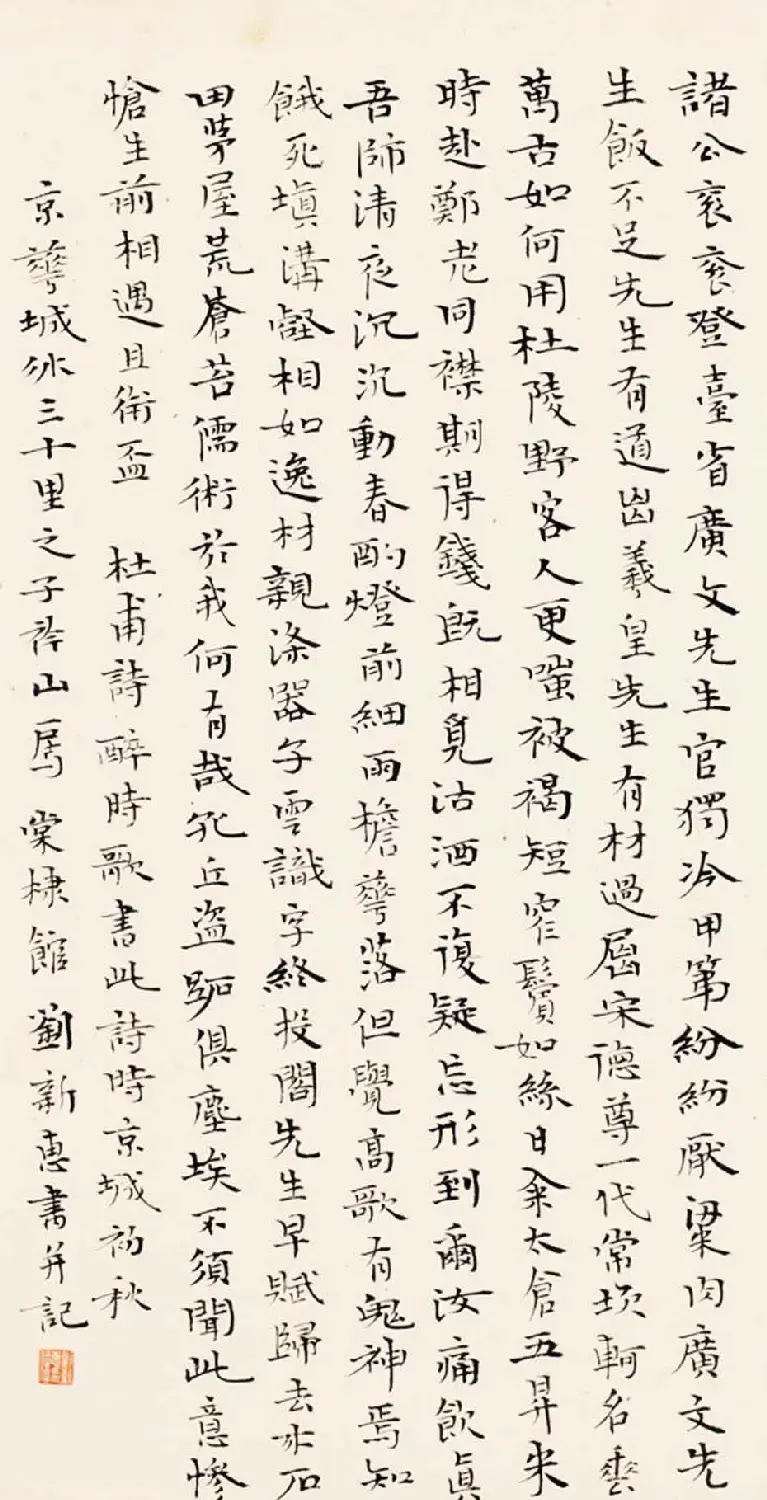 諸公袞袞登臺省廣文先生官獨冷甲第紛紛厭粱肉廣文先
生飯不足先生有道出羲皇先生有材過屈宋德尊一代常坎軻名垂
萬古如何用杜陵野客人更嗤被褐短窄鬢如絲日籴太倉五昇米
時赴鄭老同襟期得錢既相覓沽酒不復疑忘形到爾汝痛飲真
吾師清夜沉沉動春酌燈前細雨檐華落但覺高歌有鬼神焉知
餓死填溝壑相如逸材親滌器子雲識字終投閣先生早賦歸去來石
田茅屋荒蒼苔儒術於我何有哉孔丘盜跖俱塵埃不須聞此意慘
愴生前相遇且銜盃 杜甫詩醉時歌書此詩時京城初秋
京華城外三十里之子午山房 棠棣館 劉新惠書并記